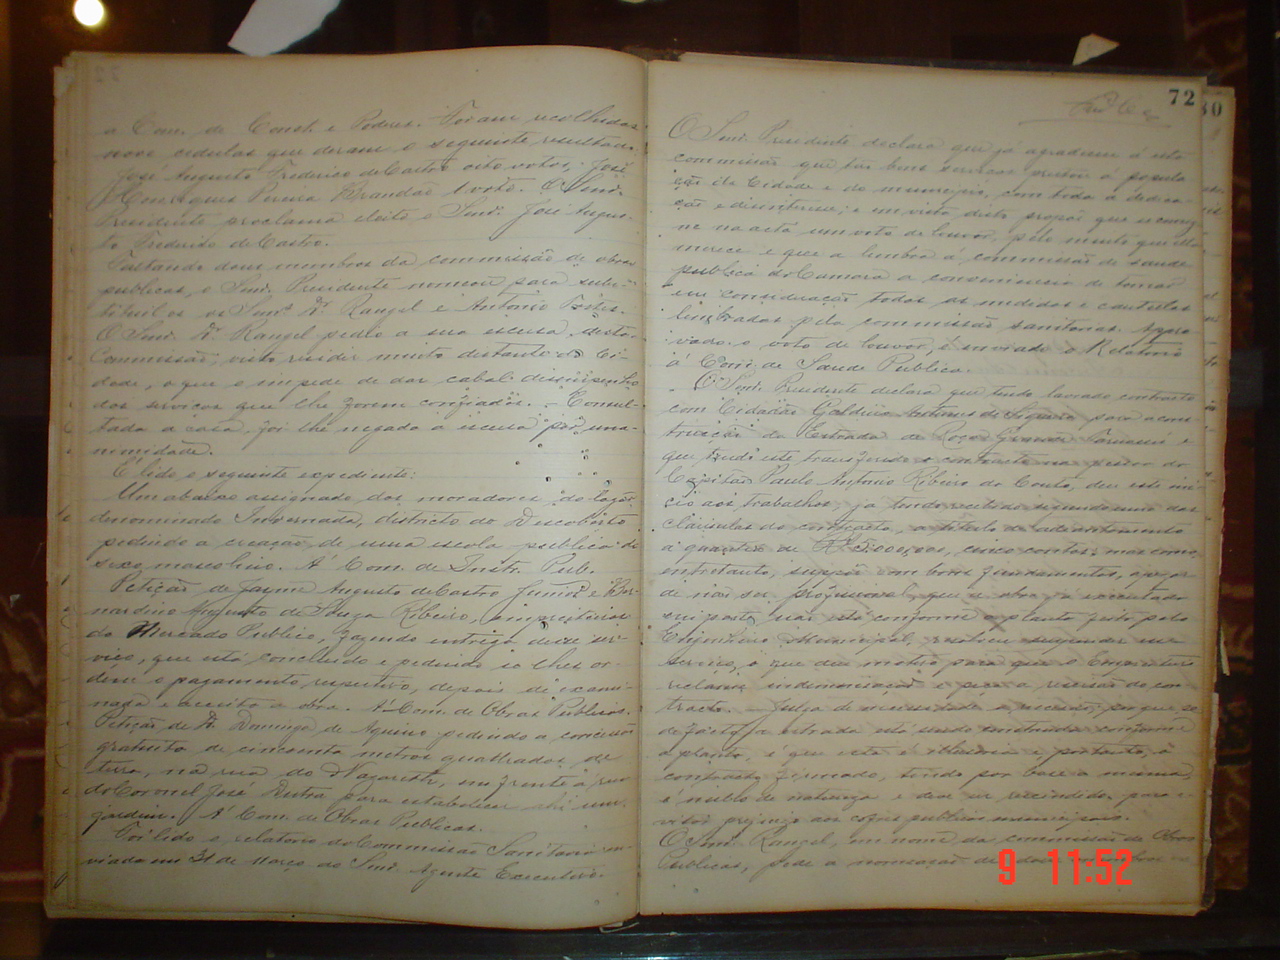 a Com. de Const. e Poderes. Foram recolhidas
nove cedulas que deram o seguinte resultado.
José Augusto Frederico de Castro oito votos, José
Henriques Pereira Brandão 1 voto. O Snr.
Presidente proclama eleito o Snr. José Augus-
to Frederico de Castro.
Faltando dous membros da commissão de obras
publicas, o Snr. Presidente nomeou para subs-
tituil-os os Snrs. Dr. Rangel e Antonio
O Snr. Dr. Rangel pedio a sua escusa desta
Commissão, visto residir muito distante da Ci-
dade, o que o impede de dar cabal desempenho
dos serviços que lhe forem confiados. - Consul-
tada a casa, foi lhe negada a escusa por una-
nimidade.
É lido o seguinte expediente:
Um abaixo assignado dos moradores do logar
denominado Invernada, districto do Descoberto
pedindo a creação de uma escola publica do
sexo masculino. Á Com. de Instr. Pub.
Petição de Jayme Augusto de Castro Junior e Ber-
nardino Augusto de Souza Ribeiro, empreiteiros
do Mercado Publico, fazendo entrega desse ser-
viço, que está concluido e pedindo se lhes or-
dene o pagamento respectivo, depois de exami-
nada e acceita a obra. Á Com. de Obras Publicas.
Petição de Domingo de Aquino pedindo a concessão
gratuita de cincoenta metros quadrados de
terra, na rua do Nazareth, em frente á rua
do Coronel José Dutra para estabelecer ahi um
jardim. Á Com. de Obras Publicas.
Foi lido o relatorio da Commissão Sanitaria en-
viado em 31 de Março ao Snr. Agente Executivo.
72
80
O Snr. Presidente declara que já agradeceu á esta
commissão que tão bons serviços prestou á popula-
ção da Cidade e do municipio, com toda a dedica-
ção e desinteresse; e em vista disto propõe que se consig-
ne na acta um voto de louvor, pelo muito que ella
merece e que a lembra á commissão de saude
publica da Camara a conveniencia de tomar
em consideração todas as medidas e cautelas
lembradas pela commissão sanitaria. Appro-
vado o voto de louvor, é enviado o Relatorio
á Com. de Saude Publica.
O Snr. Presidente declara que tendo lavrado contracto
com Cidadão Galdino de Siqueira para a cons-
trucção da Estrada de Roça Grande e
que tendo este transferido o contracto na pessoa do
Capitão Paulo Antonio Ribeiro do Couto, deu este ini-
cio aos trabalhos, já tendo recebido segundo uma das
clausulas do contracto, a titulo de adiantamento
a quantia de Rs 5:000,000, cinco contos; mas como,
entretanto, suppõe com bons fundamentos, apezar
de não ser profissional, que a obra já executada
em parte, não está conforme a planta feita pelo
Engenheiro Municipal, resolveu suspender esse
serviço, o que deu motivo para que o Empreiteiro
reclame indemnisação e peça a rescisão do con-
tracto. - Julga de necessidade a rescisão, porque se
de facto a estrada está sendo construida conforme
a planta, é que esta é e portanto, o
contracto firmado, tendo por base a mesma,
é nullo de natureza e deve ser rescindido, para e-
vitar prejuizo aos cofres publicos municipaes.
O Snr. Rangel, em nome da commissão de Obras
Publicas, pede a nomeação de
9 11:52